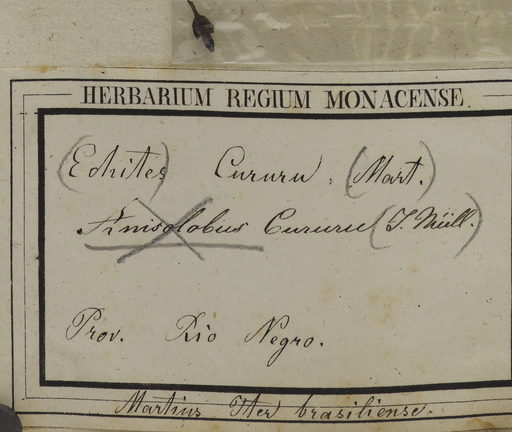 HERBARIUM REGIUM MONACENSE
(Echites) Cururu. (Mart.)
Anisolobus Cururu (J. Müll.)
Prov. Rio Negro.
Martius Iter brasiliense.